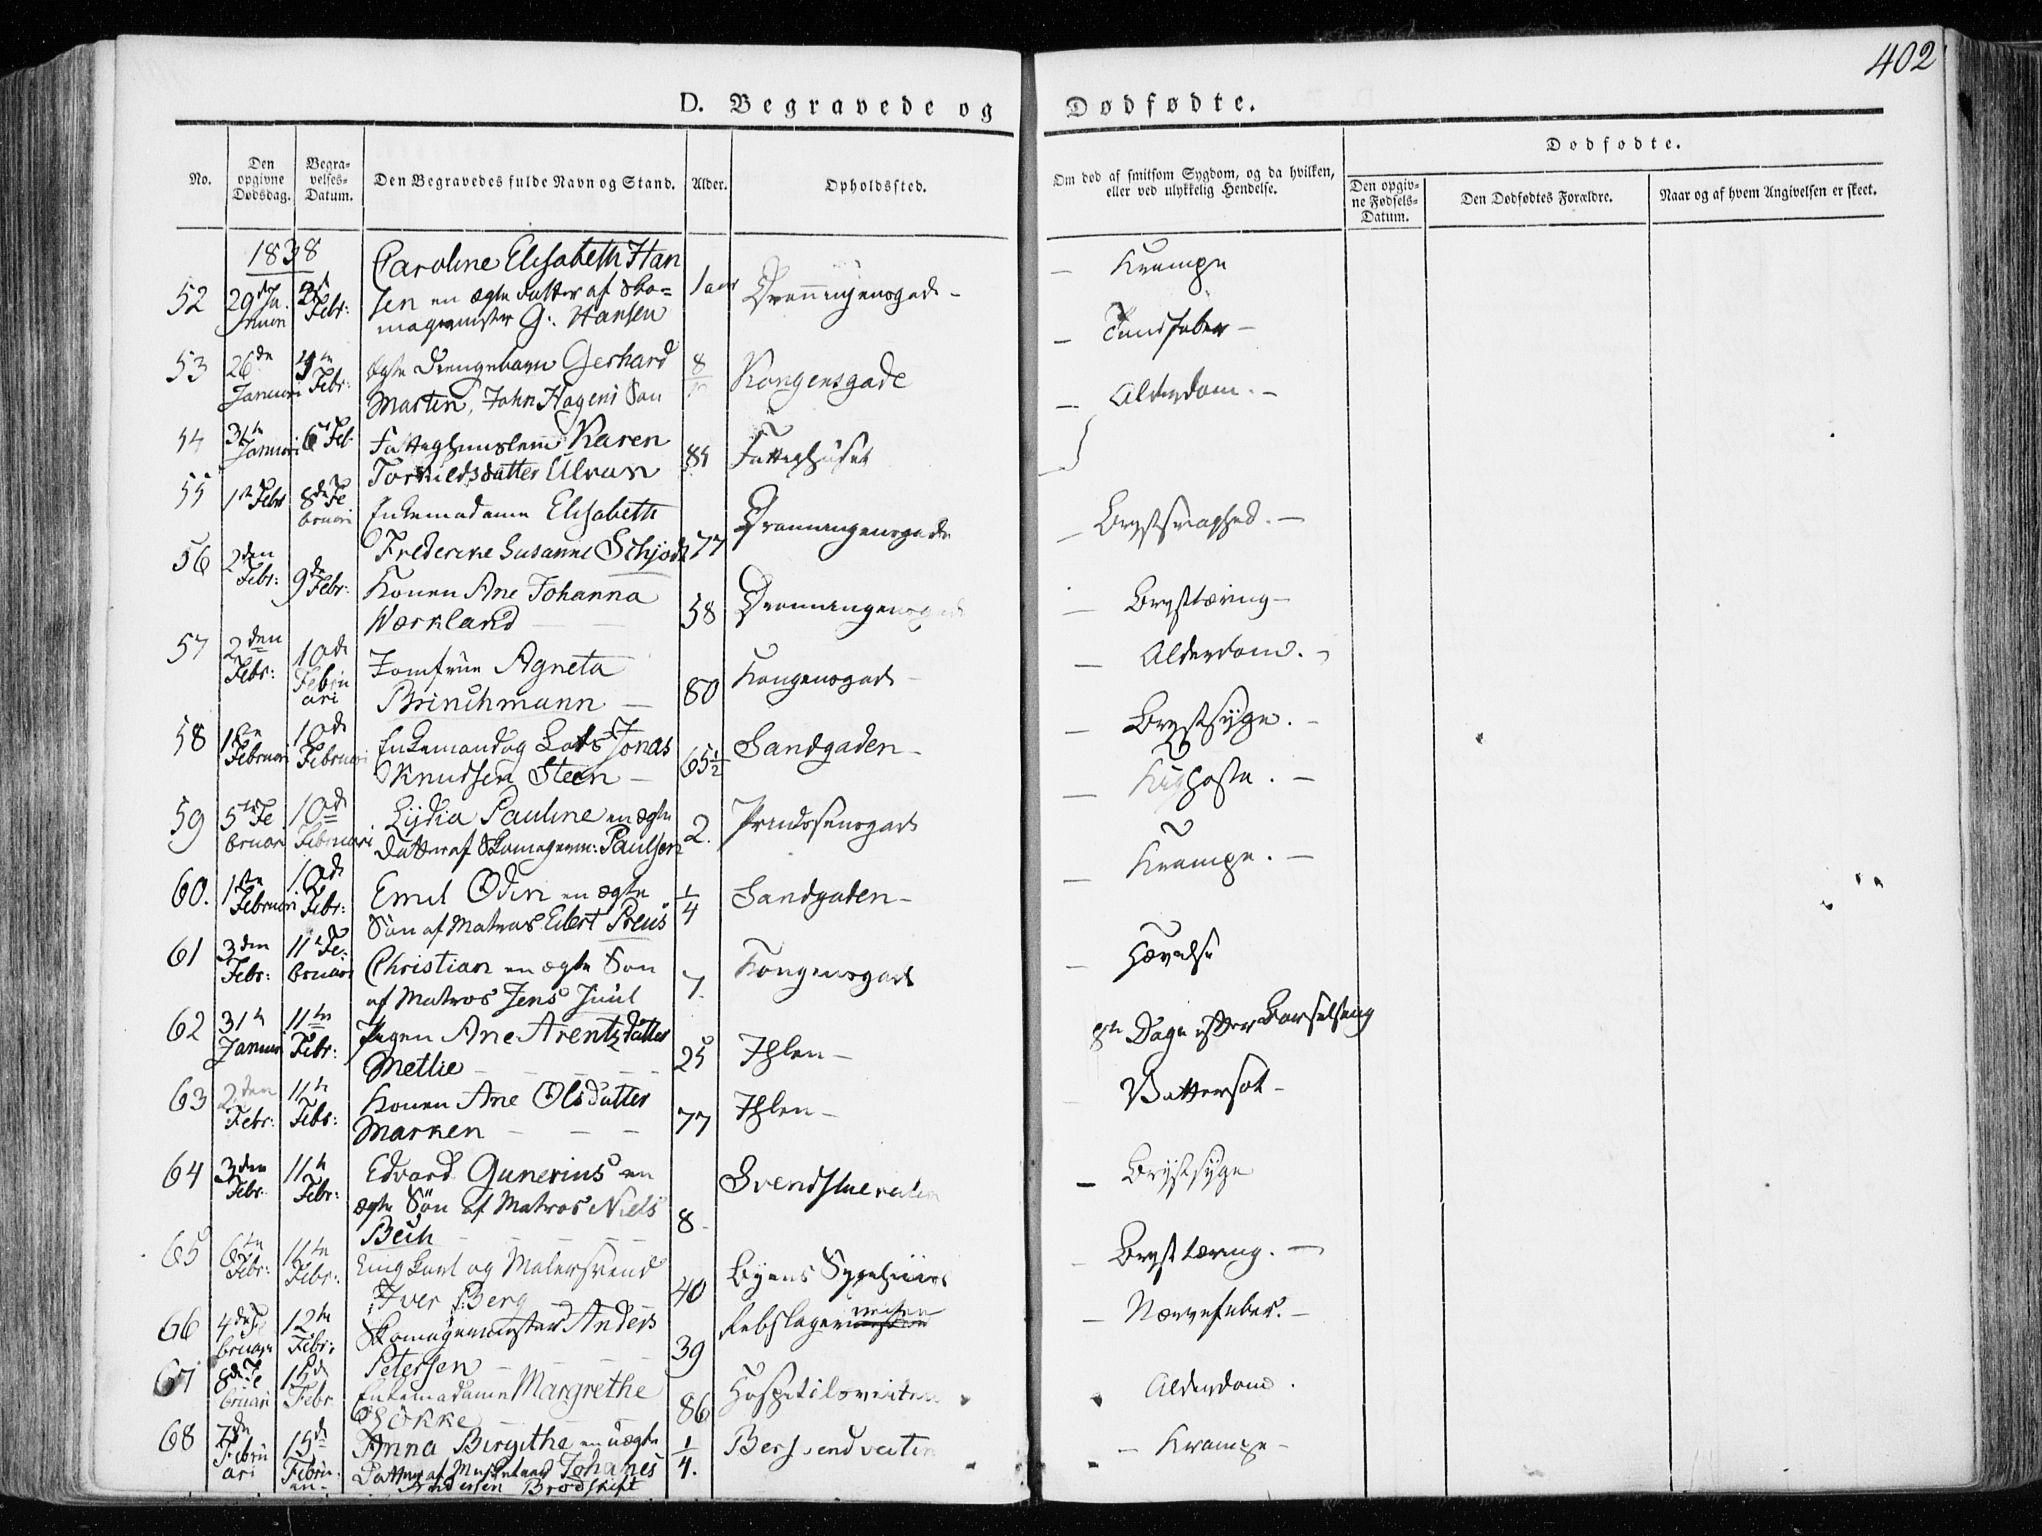 402
D. Begravede og Dødfødte.
No.
Den opgivne Dødsdag.
Begravelses-Datum.
Den Begravedes fulde Navn og Stand.
Alder.
Opholdssted.
Om død af smitsom Sygdom, og da hvilken, eller ved ulykkelig Hendelse.
Dødfødte.
Den opgivne Fødsels-Datum.
Den Dødfødtes Forældre.
Naar og af hvem Angivelsen er skeet.
1838
52 29de Januari Febr: Caroline Elisabeth Han
sen en ægte Datter af Sko=
magermester G. Hansen 1 aar Dronningensgade - Krampe
53 26de Januari Febr: ægte Drengebarn Gerhard
Martin, John Hagens Søn 8 Kongensgade - Tandfeber -
54 31te Januari 6te Feb Fattighuuslem Karen
Torkildsdatter Ulvan Fattighuset - Alderdom. -
55 1ste Febr 8de Februari Enkemadame Elisabeth
Frederikke Susanne Schjødt 77 Dronningensgade - Brystsvaghed. -
56 2den Febr: 9de Febr: Konen Ane Johanna
Værkland 58 Dronningensgade - Brysttæring -
57 2den Febr: 10de Februari Jomfrue Agneta
Brinchmann - 80 Kongensgade - - Alderdom. -
58 1ste Februari 10de Februari Enkemand og Lods Jonas
Knudsen Steen - 65 1/2 Sandgaden - - Brystsyge. -
59 5te Februari 10de Februari Lydia Pauline en ægte
Datter af Skomagerm: Paulsen 2. Prindsensgade - Kighoste. -
60. 1ste Februari 10de Febr: Emil Odin en ægte
Søn af Matros Eilert Preus 1/4 Sandgaden - - Krampe. -
61 3den Febr: 11te Februari Christian en ægte Søn
af Matros Jens Juul 7. Kongensgade - Hævelse
62 31te Januari 11te Febr: Pigen Ane Arentzdatter
Metlie 25 Ihlen - 8te Dage efter Barselseng
63 2den Febr: 11te Febr: Konen Ane Olsdatter
Marken - - - 77 Ihlen - Vattersot -
64 3den Febr. 11te Febr: Edvard Gunerius en
ægte Søn af Matros Niels
Beck 8 - - Brystsyge
65 6te Febr: 11te Febr: Ungkarl og Malersvend
Iver Berg 40 Byens Sygehuus - Brysttæring. -
66 4de Februari 12te Febr: Skomagermester Anders
Petersen - - 39 Rebslager veiten - Nærvefeber. -
67 8de Februari 15de Febr Enkemadame Margrethe
Høkke 86 Hospitalsveiten Alderdom.
68 7de Februari 15de Februari Anna Birgithe en uægte
Datter af Musketeer Johanes
Andersen Brødskift 1/4. - Krampe -